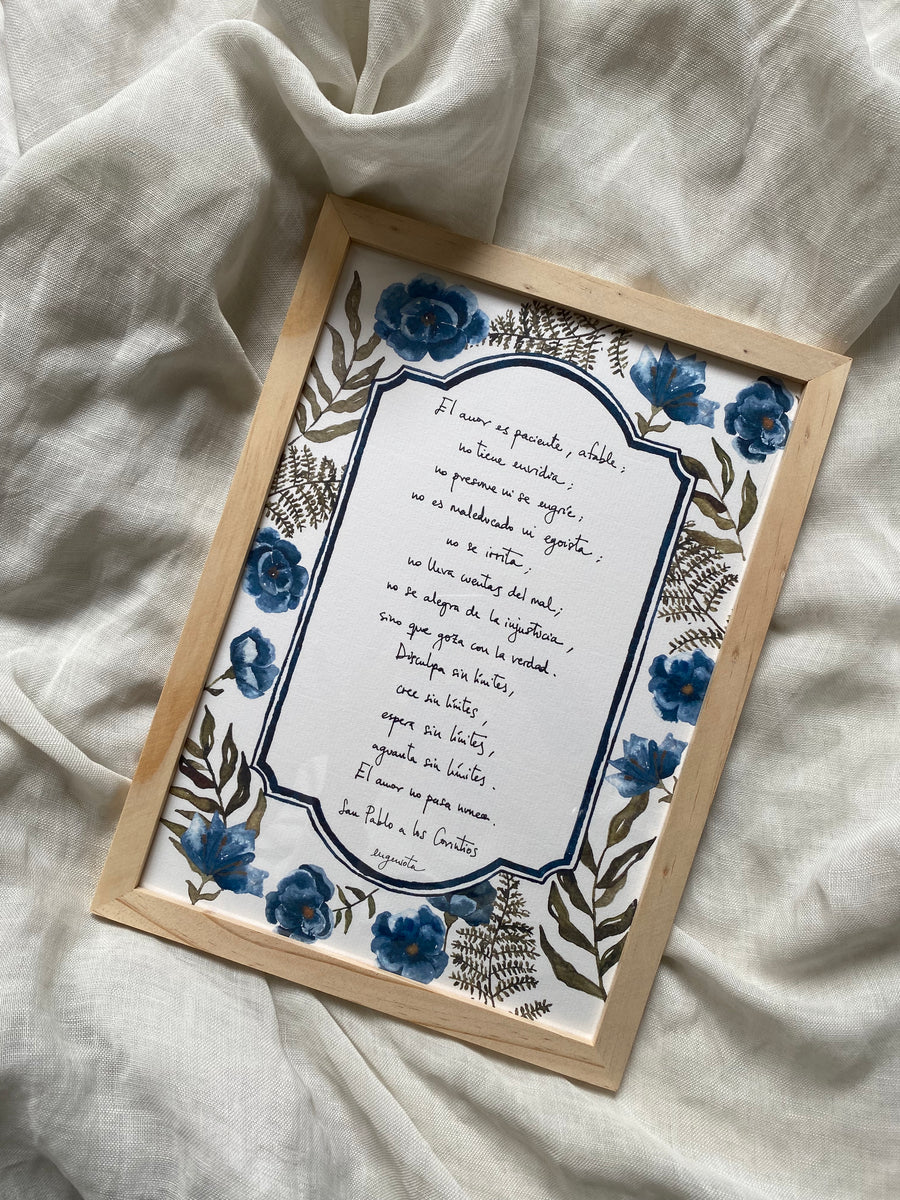 El amor es paciente, afable;
no tiene envidia;
no presume ni se engríe;
no es maleducado ni egoísta;
no se irrita;
no lleva cuentas del mal;
no se alegra de la injusticia,
sino que goza con la verdad.
Disculpa sin límites,
cree sin límites,
espera sin límites,
aguanta sin límites.
El amor no pasa nunca.
San Pablo a los Corintios
eugeniota